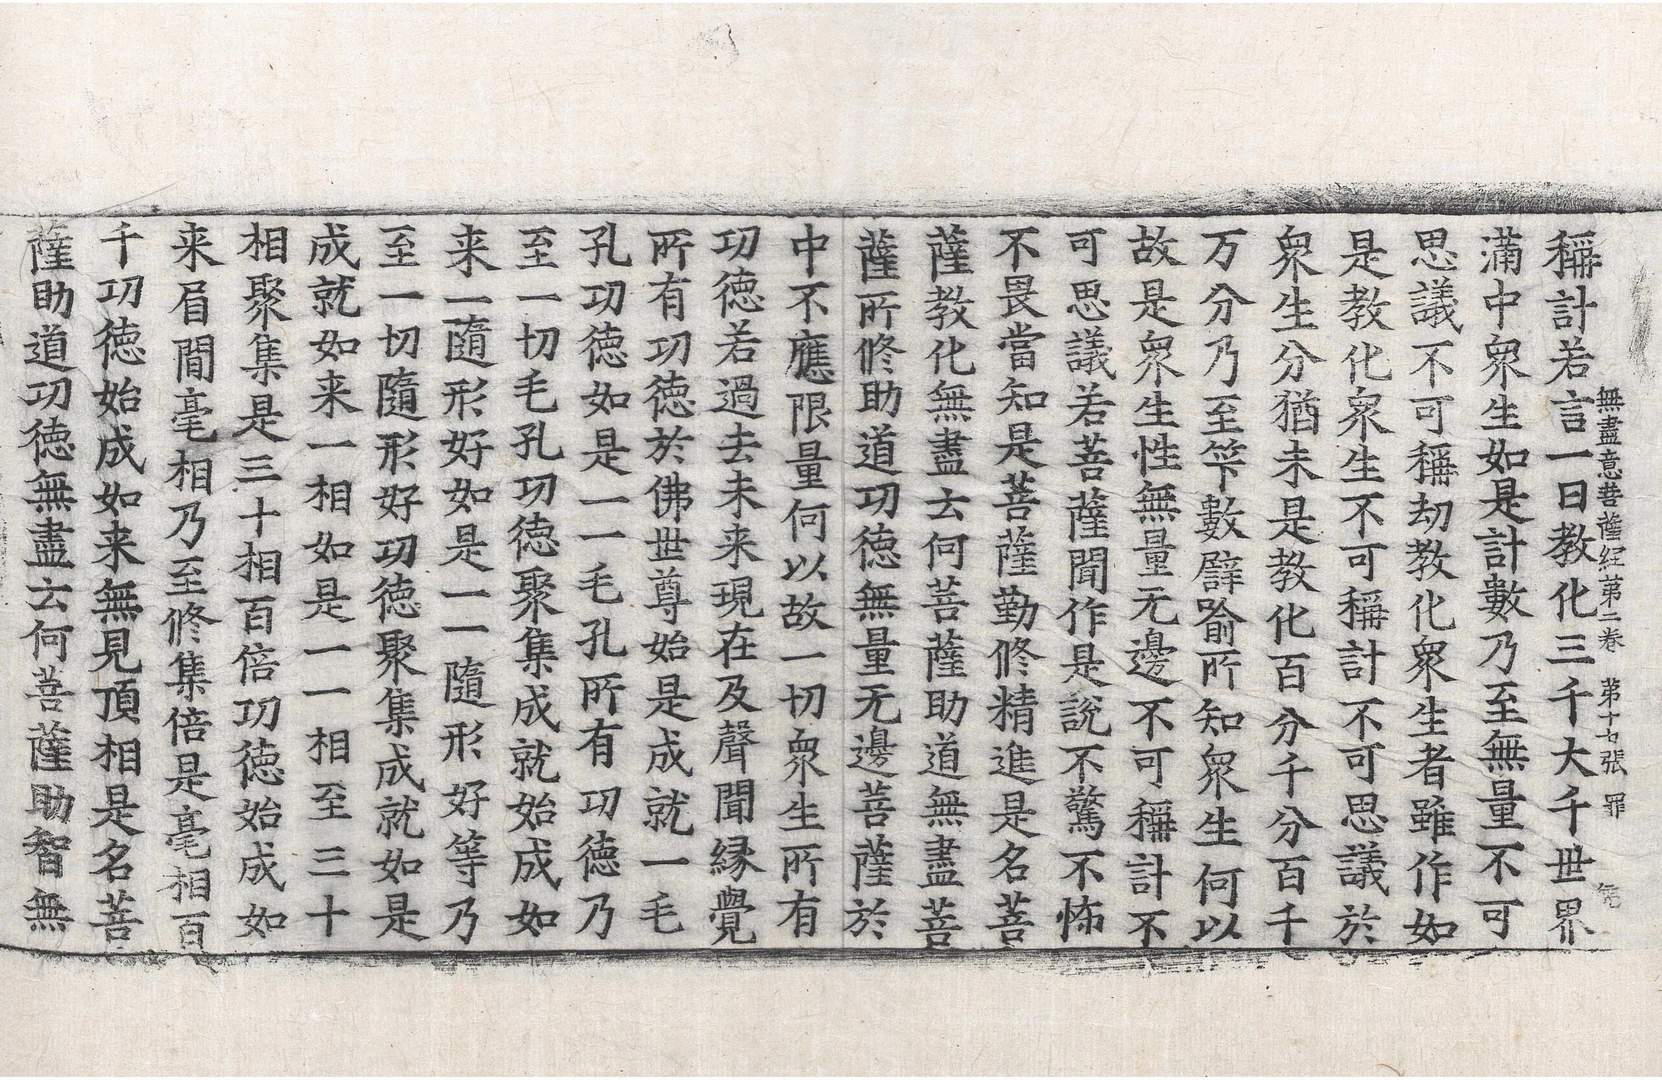 無盡意菩薩経第二卷　第十七張　罪
稱計若言一日教化三千大千世界
滿中衆生如是計數乃至無量不可
思議不可稱劫教化衆生者雖作如
是教化衆生不可稱計不可思議於
衆生分猶未是教化百分千分百千
万分乃至筭數譬喻所知衆生何以
故是衆生性無量无邊不可稱計不
可思議若菩薩聞作是說不驚不怖
不畏當知是菩薩勤修精進是名菩
薩教化無盡云何菩薩助道無盡菩
薩所修助道功德無量无邊菩薩於
中不應限量何以故一切衆生所有
功德若過去未来現在及聲聞縁覺
所有功德於佛世尊始是成就一毛
孔功德如是一一毛孔所有功德乃
至一切毛孔功德聚集成就始成如
来一隨形好如是一一隨形好等乃
至一切隨形好功德聚集成就如是
成就如来一相如是一一相至三十
相聚集是三十相百倍功德始成如
来眉間毫相乃至修集倍是毫相百
千功德始成如来無見頂相是名菩
薩助道功德無盡云何菩薩助智無